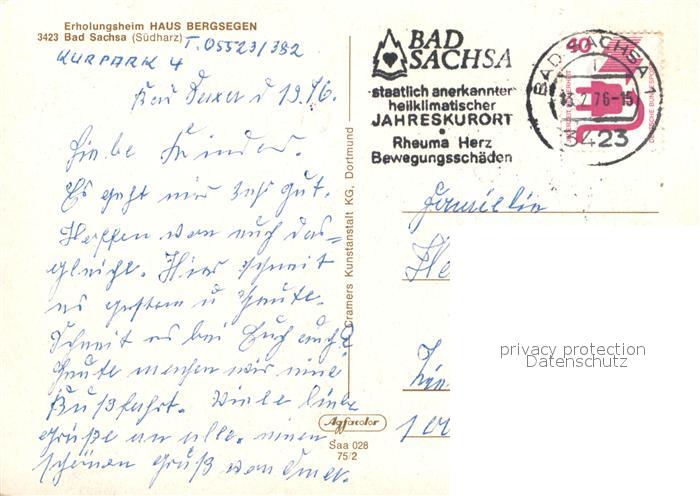 Erholungsheim HAUS BERGSEGEN
3423 Bad Sachsa (Südharz) T. 05523/382
KURPARK 4
Bad d 13.76.
Liebe Kinder.
Es geht mir sehr gut.
Hoffen von euch das=
gleiche. Hier schneit
es gestern u heute.
Schneit es bei Euch auch?
Heute machen wir eine
Bußfahrt. Viele liebe
Grüße an alle. einen
schönen Gruß von
BAD SACHSA
staatlich anerkannter
heilklimatischer
JAHRESKURORT
Rheuma Herz
Bewegungsschäden
BAD SACHSA 1
13.2.76-15
3423
40
DEUTSCHE BUNDESPOST
Familie
He
privacy protection
Datenschutz
Cramers Kunstanstalt KG, Dortmund
Agfacolor
Saa 028
75/2